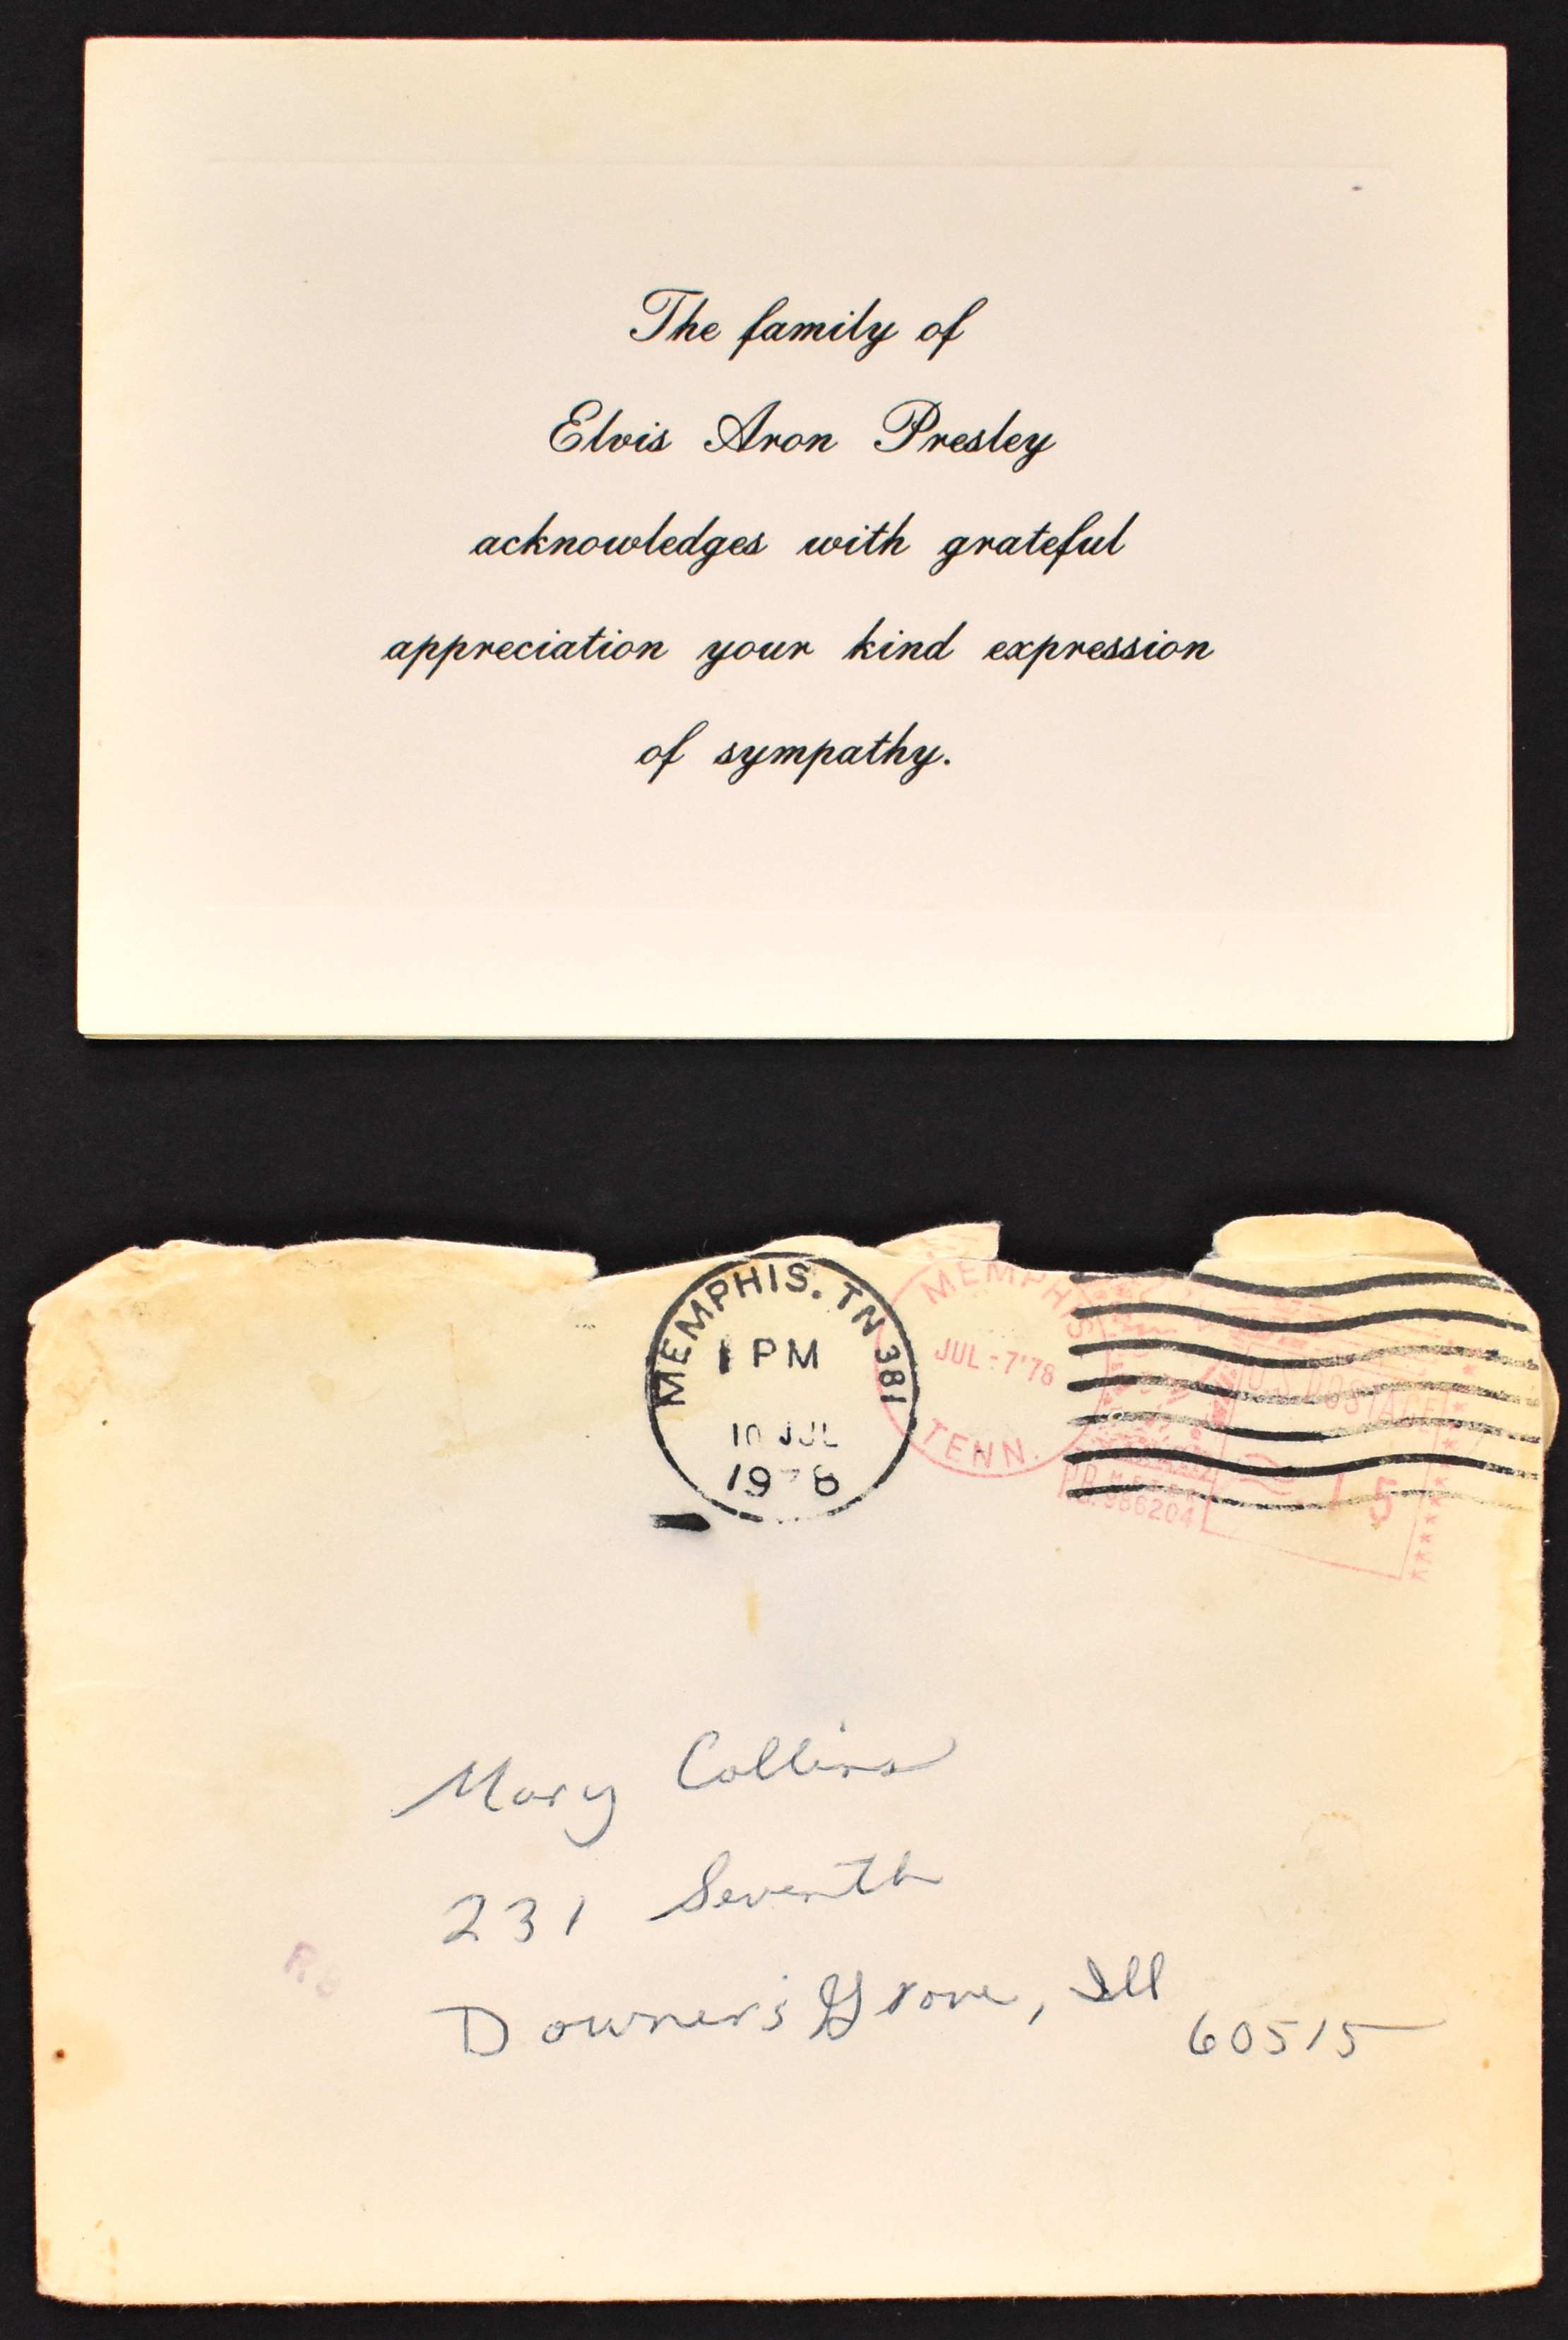 The family of
Elvis Aron Presley
acknowledges with grateful
appreciation your kind expression
of sympathy.
MEMPHIS, TN 381
1 PM
10 JUL
1978
MEMPHIS
JUL -7'78
TENN.
U.S. POSTAGE
.15
P.B. METER
986204
Mary Collins
231 Seventh
Downer's Grove, Ill
60515